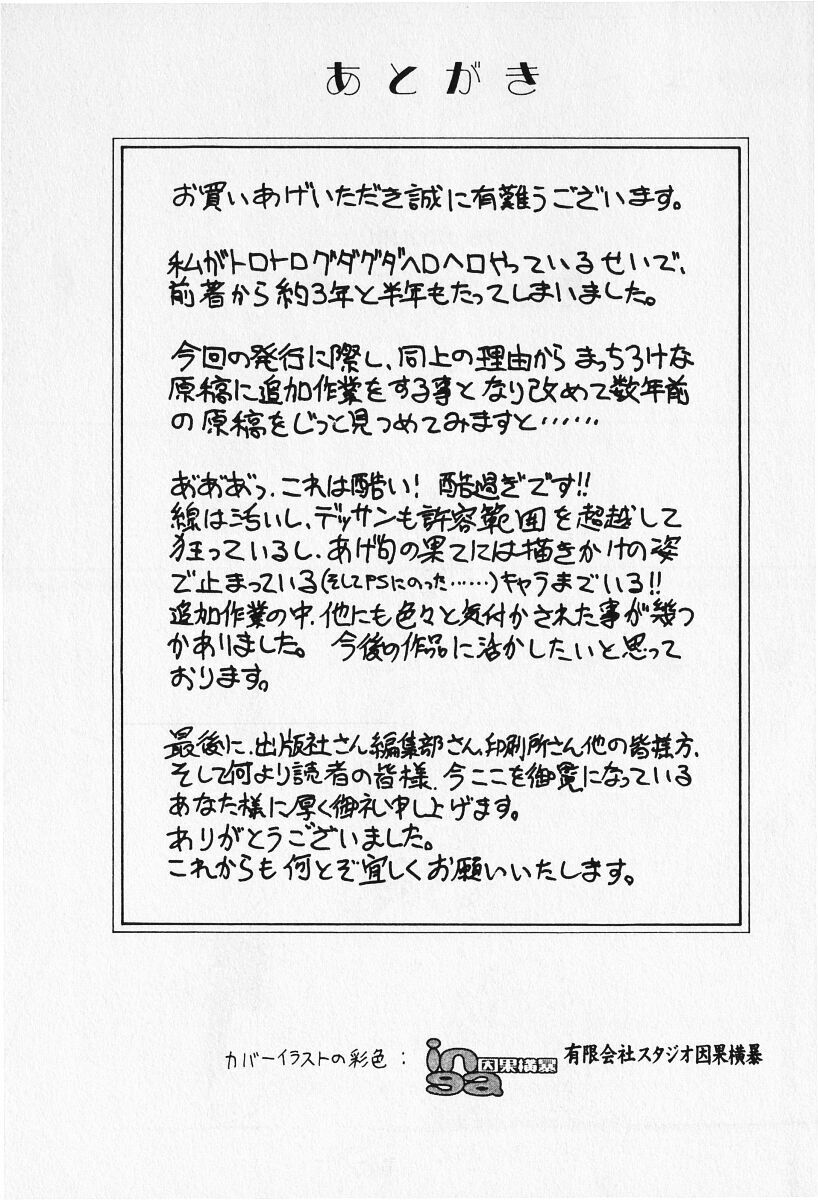 あとがき
お買いあげいただき誠に有難うございます。
私がトロトログダグダヘロヘロやっているせいで、
前著から約3年と半年もたってしまいました。
今回の発行に際し、同上の理由からまっちろけな
原稿に追加作業をする事となり改めて数年前
の原稿をじっと見つめてみますと……
あ゛あ゛あ゛っ、これは酷い! 酷過ぎです!!
線は汚いし、デッサンも許容範囲を超越して
狂っているし、あげ句の果てには描きかけの姿
で止まっている(そしてPSにのった……)キャラまでいる!!
追加作業の中、他にも色々と気付かされた事が幾つ
かありました。 今後の作品に活かしたいと思って
おります。
最後に、出版社さん、編集部さん、印刷所さん他の皆様方、
そして何より読者の皆様、今ここを御覧になっている
あなた様に厚く御礼申し上げます。
ありがとうございました。
これからも何とぞ宜しくお願いいたします。
カバーイラストの彩色: inga 因果横暴 有限会社スタジオ因果横暴